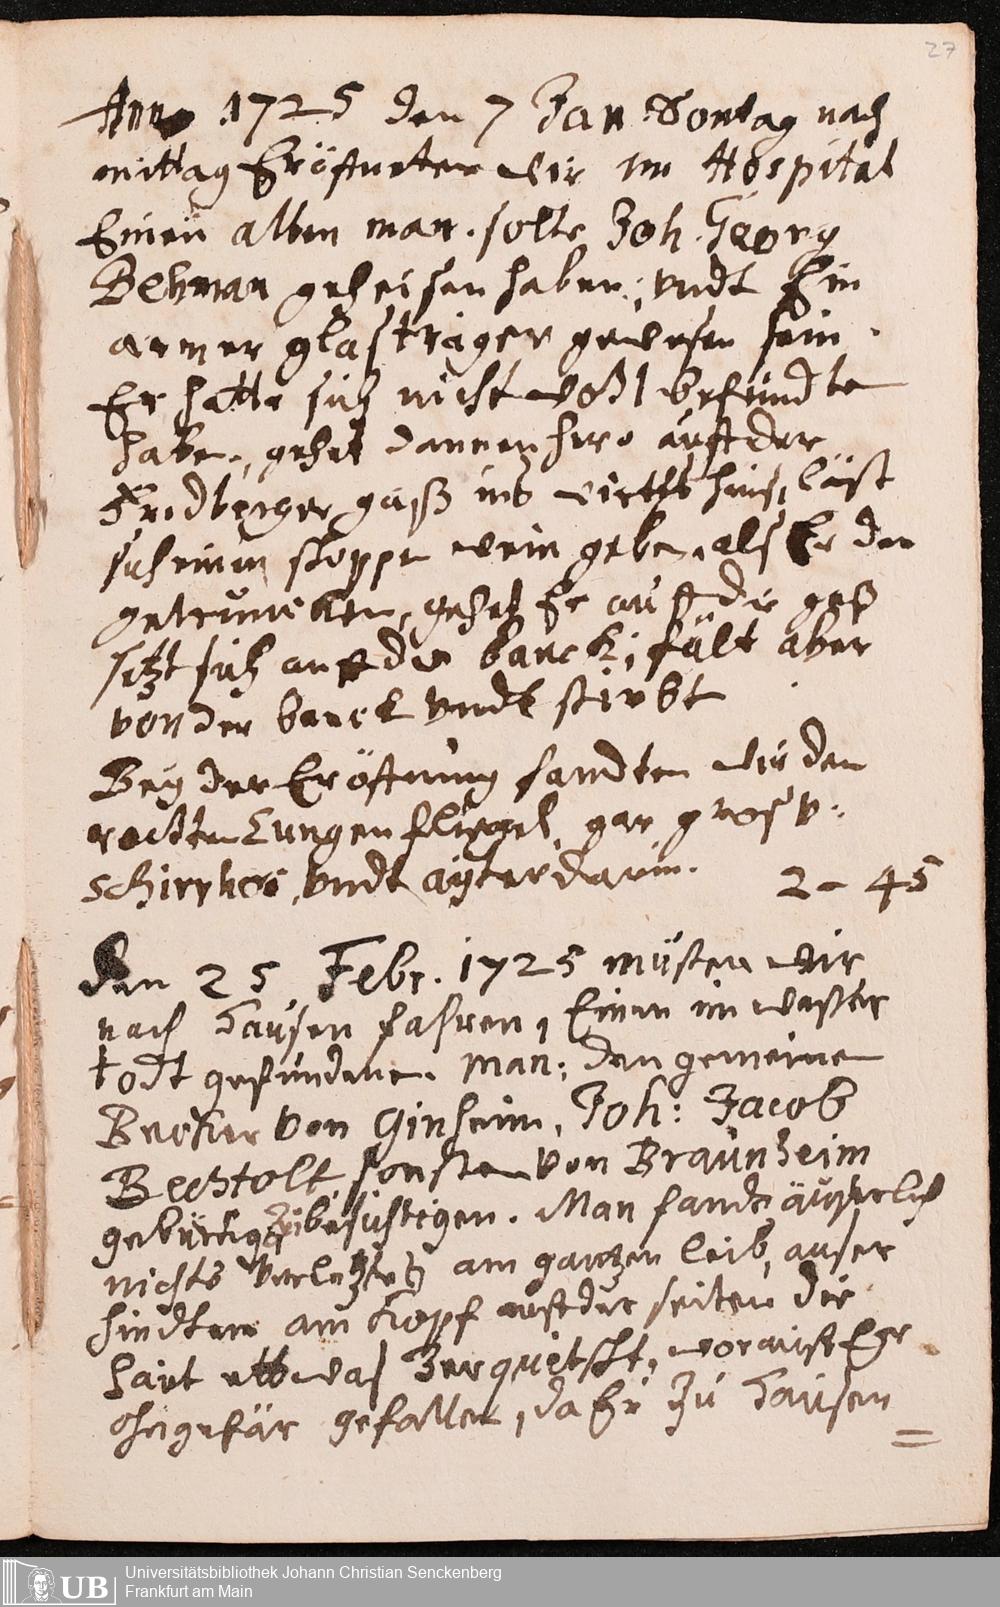 27
Anno 1725 den 7 Jan Sontag nach
mittag Eröftneten wir im Hospital
Einen alten man. solte Joh. Georg
Behman geheisen haben; undt Ein
armer glasträger gewesen sein.
Er hatte sich nicht wohl befundten
haben, gehet dannenhero auf der
Fridberger gaß ins wirtshaus, läst
sich einen schoppen wein geben, als Er den
getruncken, gehet Er auff die gaß
setzt sich auf die banck; fält aber
von der banck undt stirbt
Bey der Eröftnung fandten wir den
rechten Lungenflügel gar gros v.
schirrhos, undt ayter darin. 2 - 45
Den 25 Febr. 1725 müsten wir
nach Hausen fahren, Einen im waßer
todt gefundenen. man; den gemeinen
Becker von Ginheim, Joh: Jacob
Bechtolt, sonsten von Braunheim
gebürtig zu besichtigen. Man fande äuserlich
nichts verletztes am gantzen leib, auser
hindten am Kopf auf der seiten die
haut etwas zerquetscht, worauf Er
ohngefär gefallen, da Er zu Hausen
UB Universitätsbibliothek Johann Christian Senckenberg
Frankfurt am Main